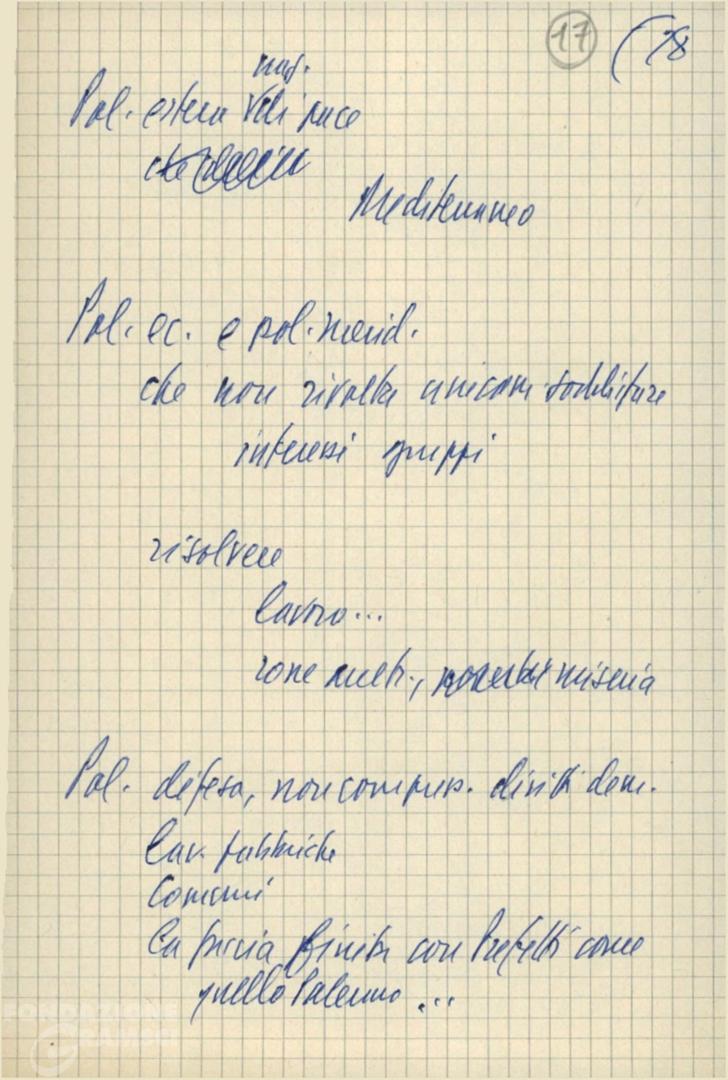 17 (78
naz.
Pol. estera di pace
che
Mediterraneo
Pol. ec. e pol. merid.
che non rivolta unicam. soddisfare
interessi gruppi
risolvere
lavoro...
zone arretr., miseria
Pol. difesa, non compress. diritti dem.
lav. fabbriche
Comuni
la faccia finita con Prefetti come
quello Palermo...
FONDAZIONE
GRAMSCI